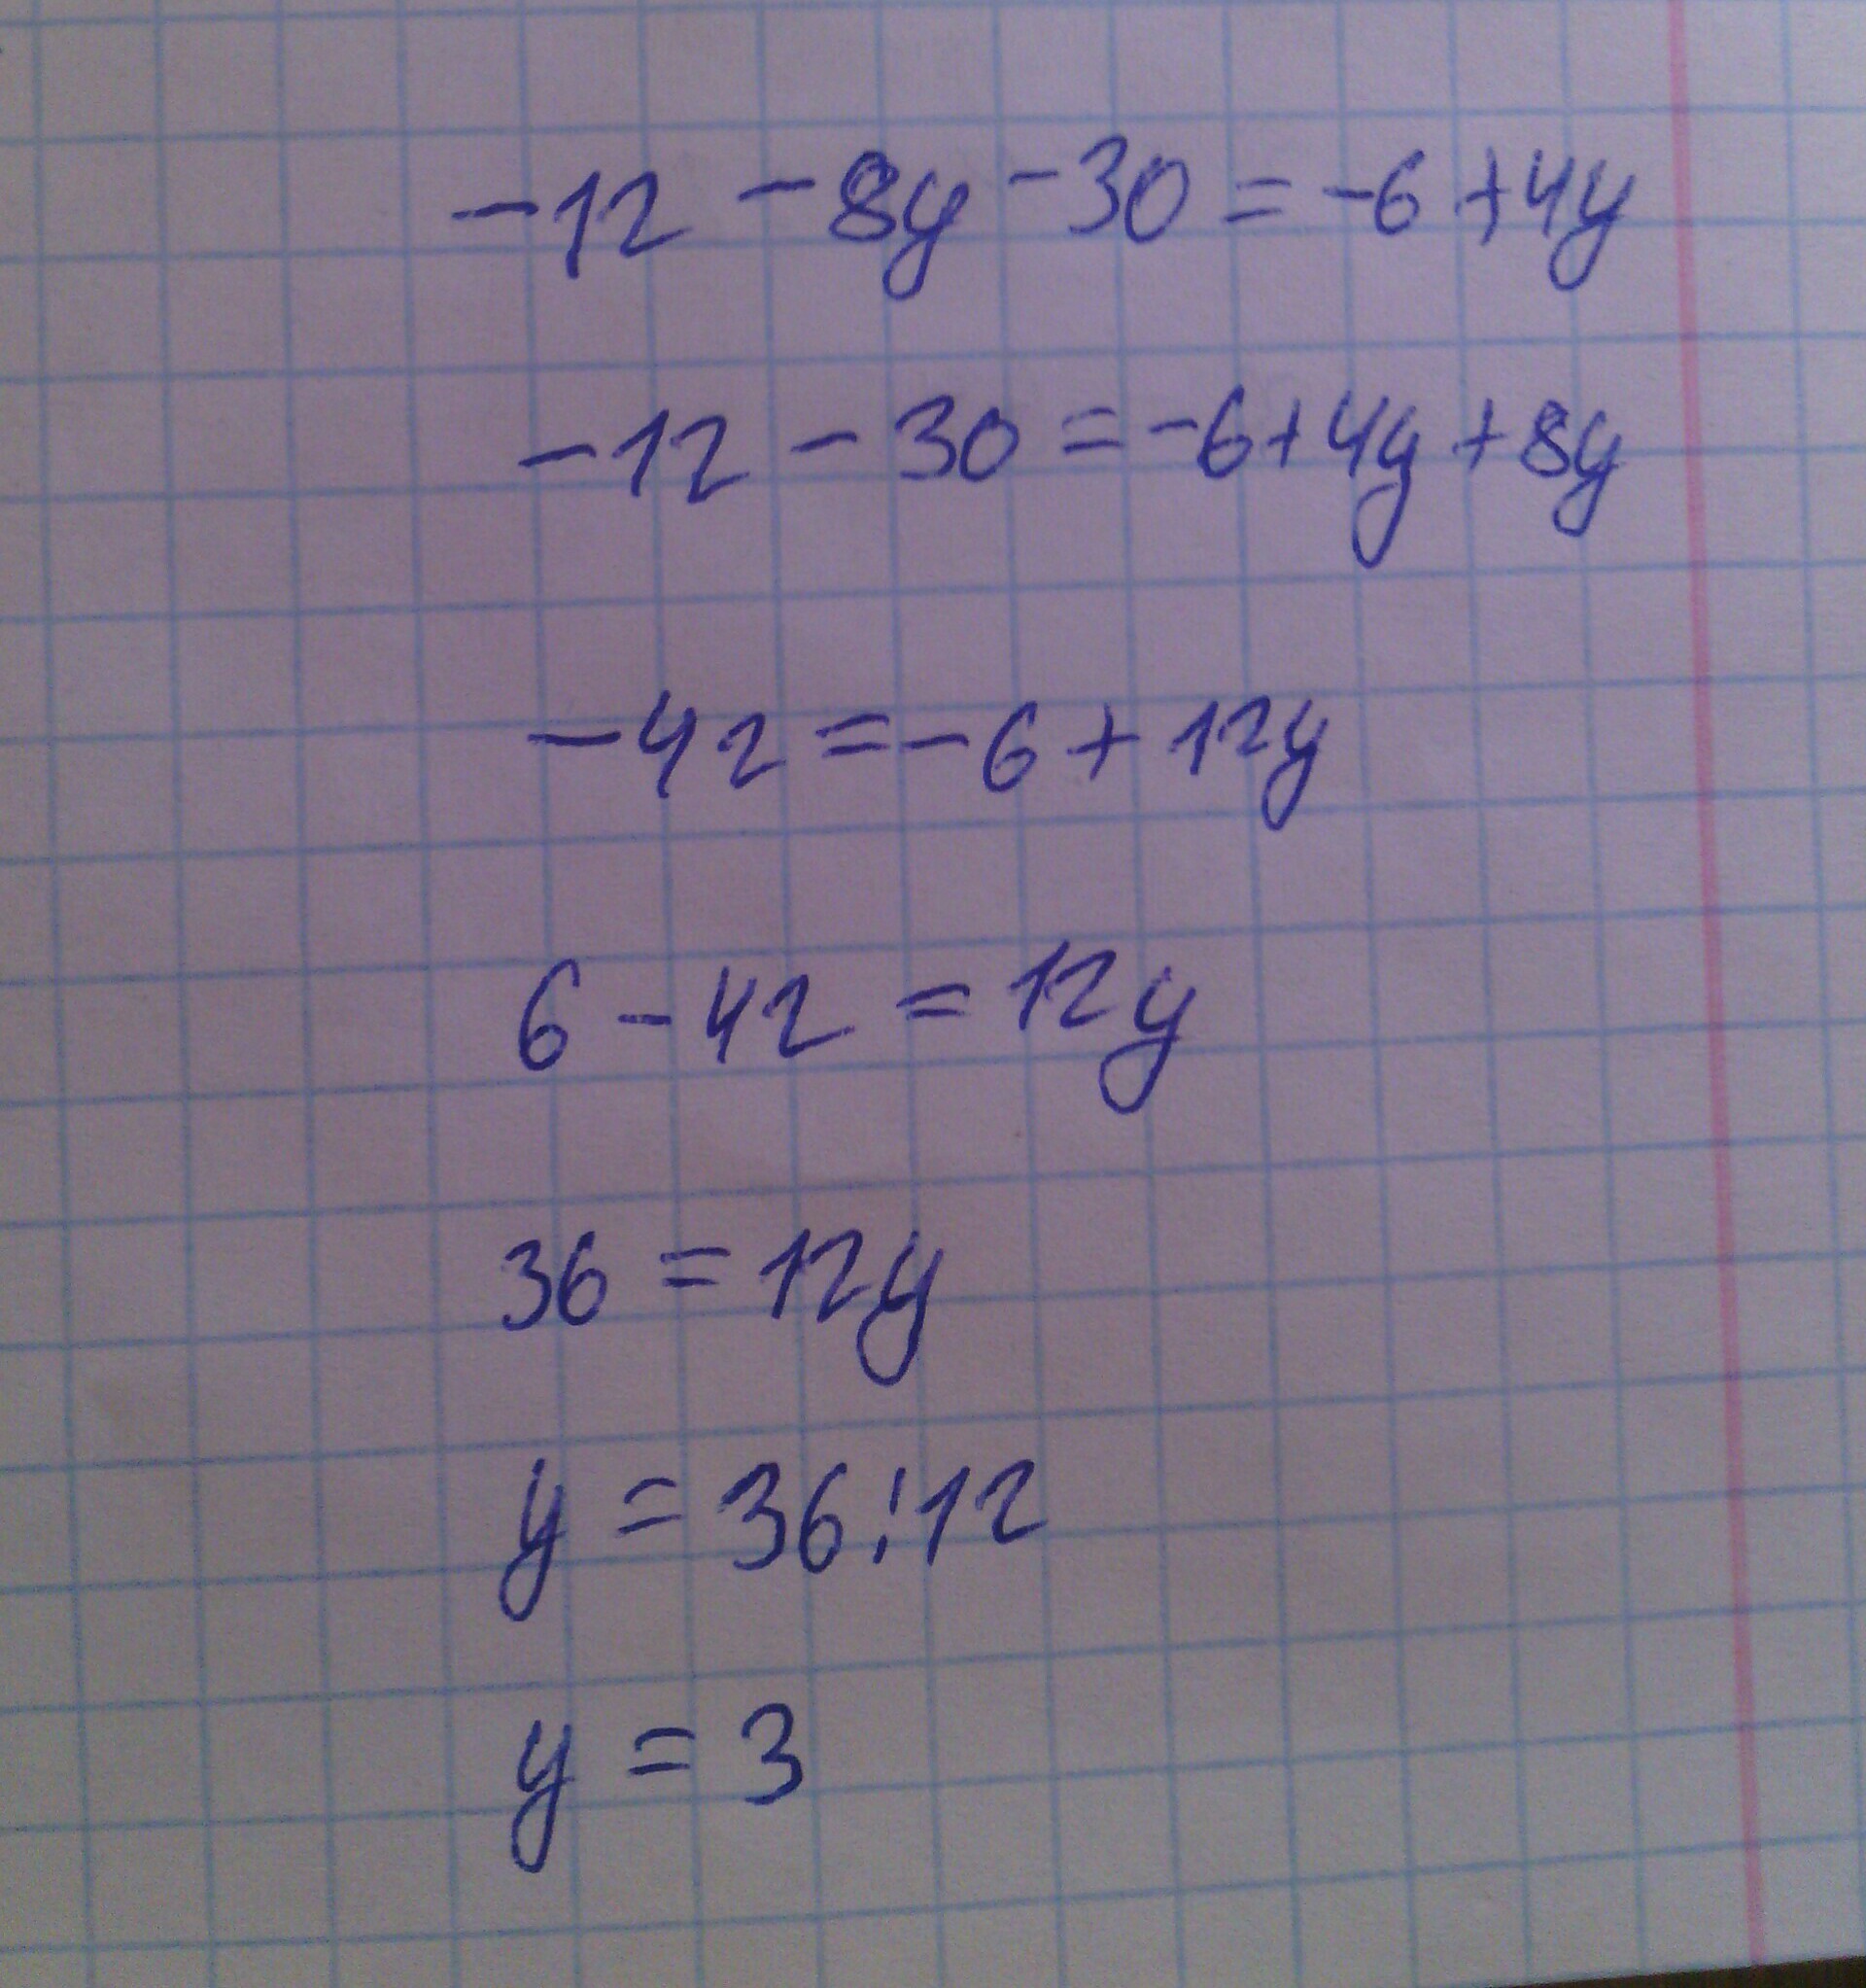 -12 - 8y - 30 = -6 + 4y
-12 - 30 = -6 + 4y + 8y
-42 = -6 + 12y
6 - 42 = 12y
36 = 12y
y = 36:12
y = 3